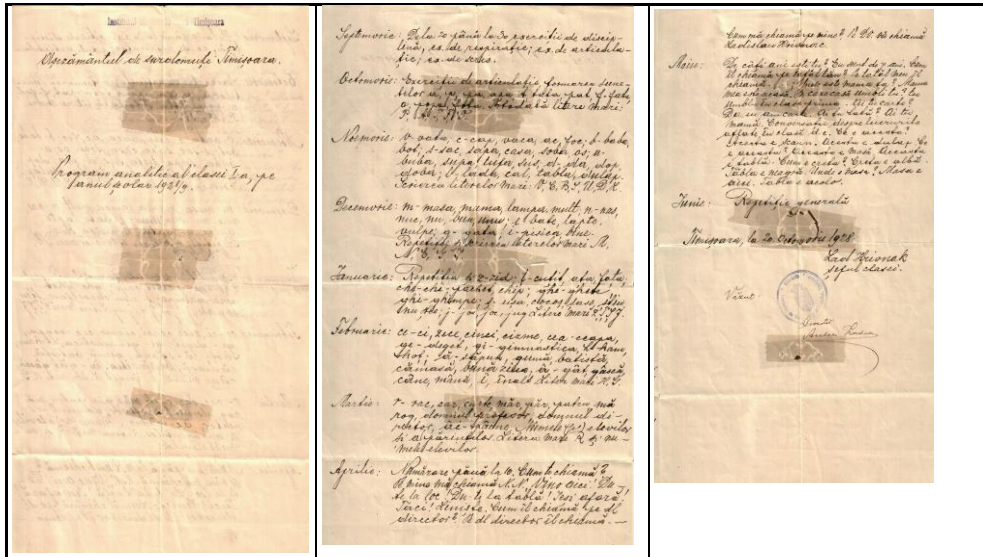 Timișoara
Așezământul de surdomuți Timișoara.
Program analitic al clasei I-a, pe
anul școlar 1928/9.
Septemvrie: Dela 20 până la 30 exerciții de disci-
plină, ex. de respirație; ex. de articula-
ție; ex. de
Octomvrie: Exerciții de articulație formarea
a, p, pa, apa, t, tata, pat, f, fata,
o, popa, Litere mari:
P.
Noemvrie: v-vata, c-cap, vaca, ac, foc; b-baba,
bot; s-sac, sapa, casa, soba, os; u-
buba, supa, tufa, sus, d-da, dop,
doba; l, lada, cal, tabla, dulap.
Scrierea literelor mari: V, C, B, S, U, D, L.
Decemvrie: m-masa, mama, lampa, mult, n-nas,
nuc, nu, bun, unu; e-bate, lapte,
vulpe, g-gata; i-pisica, bine.
Repetiții și scrierea literelor mari M.
N. E. G. I.
Ianuarie: Repetiția z-zid; ț-cuțit, ața, fața,
che-chi-pachet, chip; ghe-ghete,
ghi-ghimpe; ș-ușa, cocoș,
j-joc, ja, jug Litere mari
Februarie: ce-ci, zece, cinci, cizme, cea-ceapa,
ge-deget, gi-gimnastica, h-
ă-săpun, gumă, batistă,
cămașă, bună ziua, â-gât, gâscă,
câne, mână, î, înalt Litere mari H. G.
Martie: r-rac, car, carte, măr, păr, patru, mă
rog, domnul profesor, domnul di-
rector, Numele elevilor
și a părinților. Litera mare R și nu-
mele elevilor.
Aprilie: Numărare până la 10. Cum te chiamă?
Pe mine mă chiamă N.N. Vino aici! Du-
te la loc! Du-te la tablă! Ieși afară!
Taci! Liniște. Cum îl chiamă pe dl
director? Pe dl director îl chiamă. —
Cum mă chiamă pe mine? Pe Dv. vă chiamă
Ladislau Hrivnac.
Maiu: De câți ani ești tu? Eu sunt de 7 ani. Cum
îl chiamă pe tatăl tău? Pe tatăl meu îl
chiamă Cum e mama ta? Mama
mea În ce clasă umbli tu? Eu
umblu în clasa prima. Ai tu carte?
Da, eu am carte. Ai tu tată? Ai tu
mamă? Conversație despre lucrurile
aflate în clasă Ce e aceasta?
Aceasta e Acesta e dulap. Ce
e aceasta? Aceasta e masă. Aceasta
e tablă. Cum e creta? Creta e albă.
Tabla e neagră. Unde e masa? Masa e
aici. Tabla e acolo.
Iunie: Repetiție generală
Timișoara, la 20 Octomvrie 1928.
Lad. Hrivnak
șeful clasei.
Văzut: